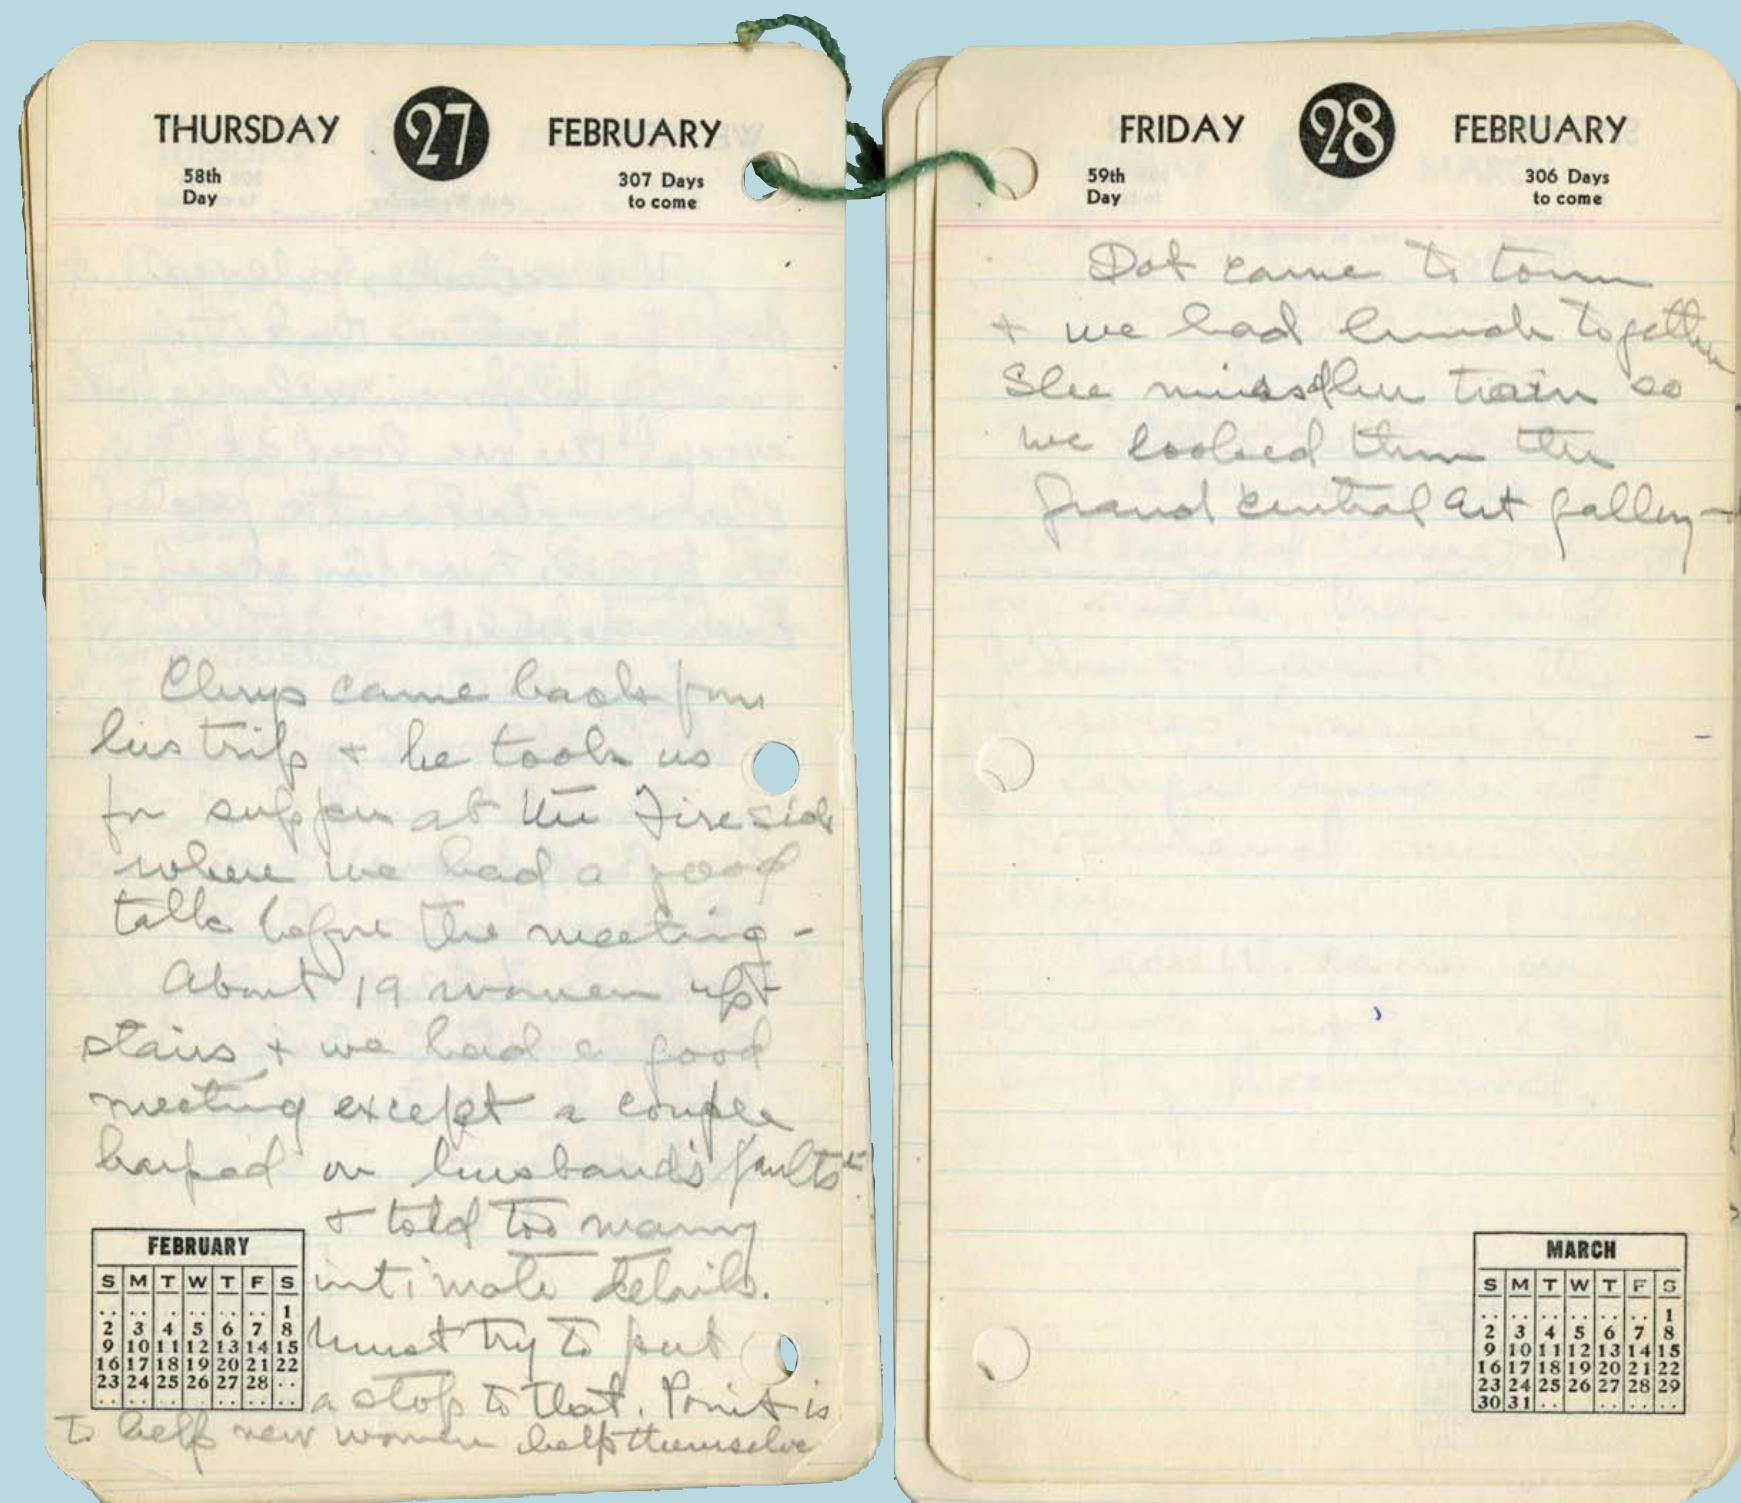 THURSDAY 27 FEBRUARY
58th Day
307 Days to come
Chrys came back from
his trip + he took us
for supper at the Fireside
where we had a good
talk before the meeting -
About 19 women up-
stairs + we had a good
meeting except a couple
harped on husband's faults
+ told too many
intimate details.
Must try to put
a stop to that. Point is
to help new women help themselve
FEBRUARY
S M T W T F S
.. .. .. .. .. .. 1
2 3 4 5 6 7 8
9 10 11 12 13 14 15
16 17 18 19 20 21 22
23 24 25 26 27 28 ..
.. .. .. .. .. .. ..
FRIDAY 28 FEBRUARY
59th Day
306 Days to come
Dot came to town
+ we had lunch together
She missed her train so
we looked thru the
Grand Central Art Gallery -
MARCH
S M T W T F S
.. .. .. .. .. .. 1
2 3 4 5 6 7 8
9 10 11 12 13 14 15
16 17 18 19 20 21 22
23 24 25 26 27 28 29
30 31 .. .. .. .. ..